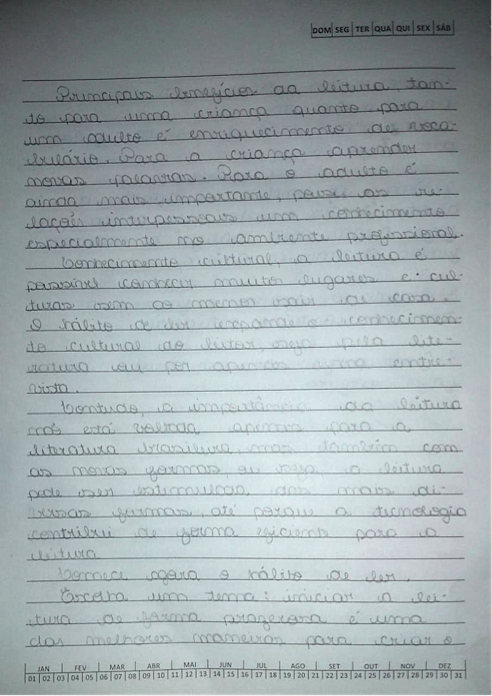 DOM SEG TER QUA QUI SEX SÁB
Principais benefícios da leitura, tan-
to para uma criança quanto para
um adulto é enriquecimento de voca-
bulário. Para a criança aprender
novas palavras. Para o adulto é
ainda mais importante, pois as re-
lações interpessoais um conhecimento
especialmente no ambiente profissional.
Conhecimento cultural, a leitura é
possível conhecer muitos lugares e cul-
turas sem ao menos sair de casa.
O hábito de ler expande o conhecimen-
to cultural do leitor, seja pela lite-
ratura ou por apenas uma entre-
vista.
Contudo, a importância da leitura
não está voltada apenas para a
literatura brasileira, mas também com
as novas formas, ou seja, a leitura
pode ser estimulada das mais di-
versas formas, até porque a tecnologia
contribui de forma eficiente para a
leitura
Comece agora o hábito de ler.
Escolha um tema: iniciar a lei-
tura de forma prazerosa é uma
das melhores maneiras para criar o
JAN FEV MAR ABR MAI JUN JUL AGO SET OUT NOV DEZ
01 02 03 04 05 06 07 08 09 10 11 12 13 14 15 16 17 18 19 20 21 22 23 24 25 26 27 28 29 30 31